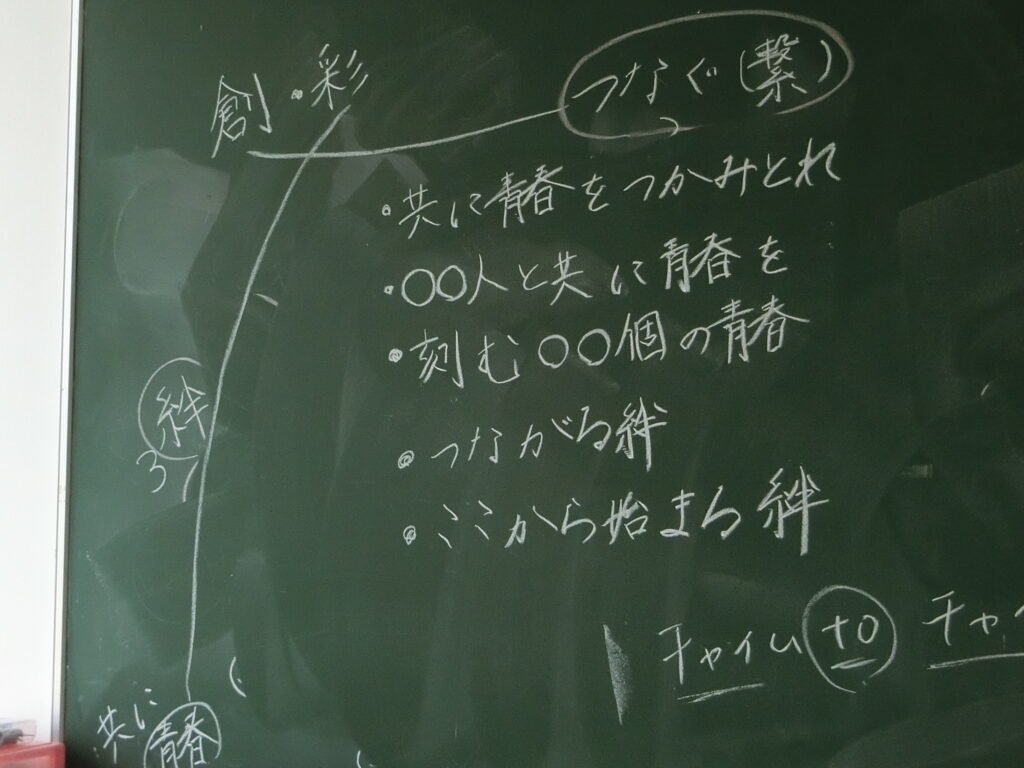 創・彩
つなぐ(繋)
・共に青春をつかみとれ
・〇〇人と共に青春を
・刻む〇〇個の青春
・つながる絆
・ここから始まる絆
絆
チャイム to チャイ
共に
青春